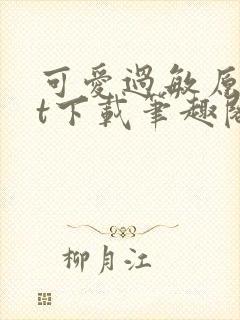 可愛過敏原
t下載筆趣閣
柳月江